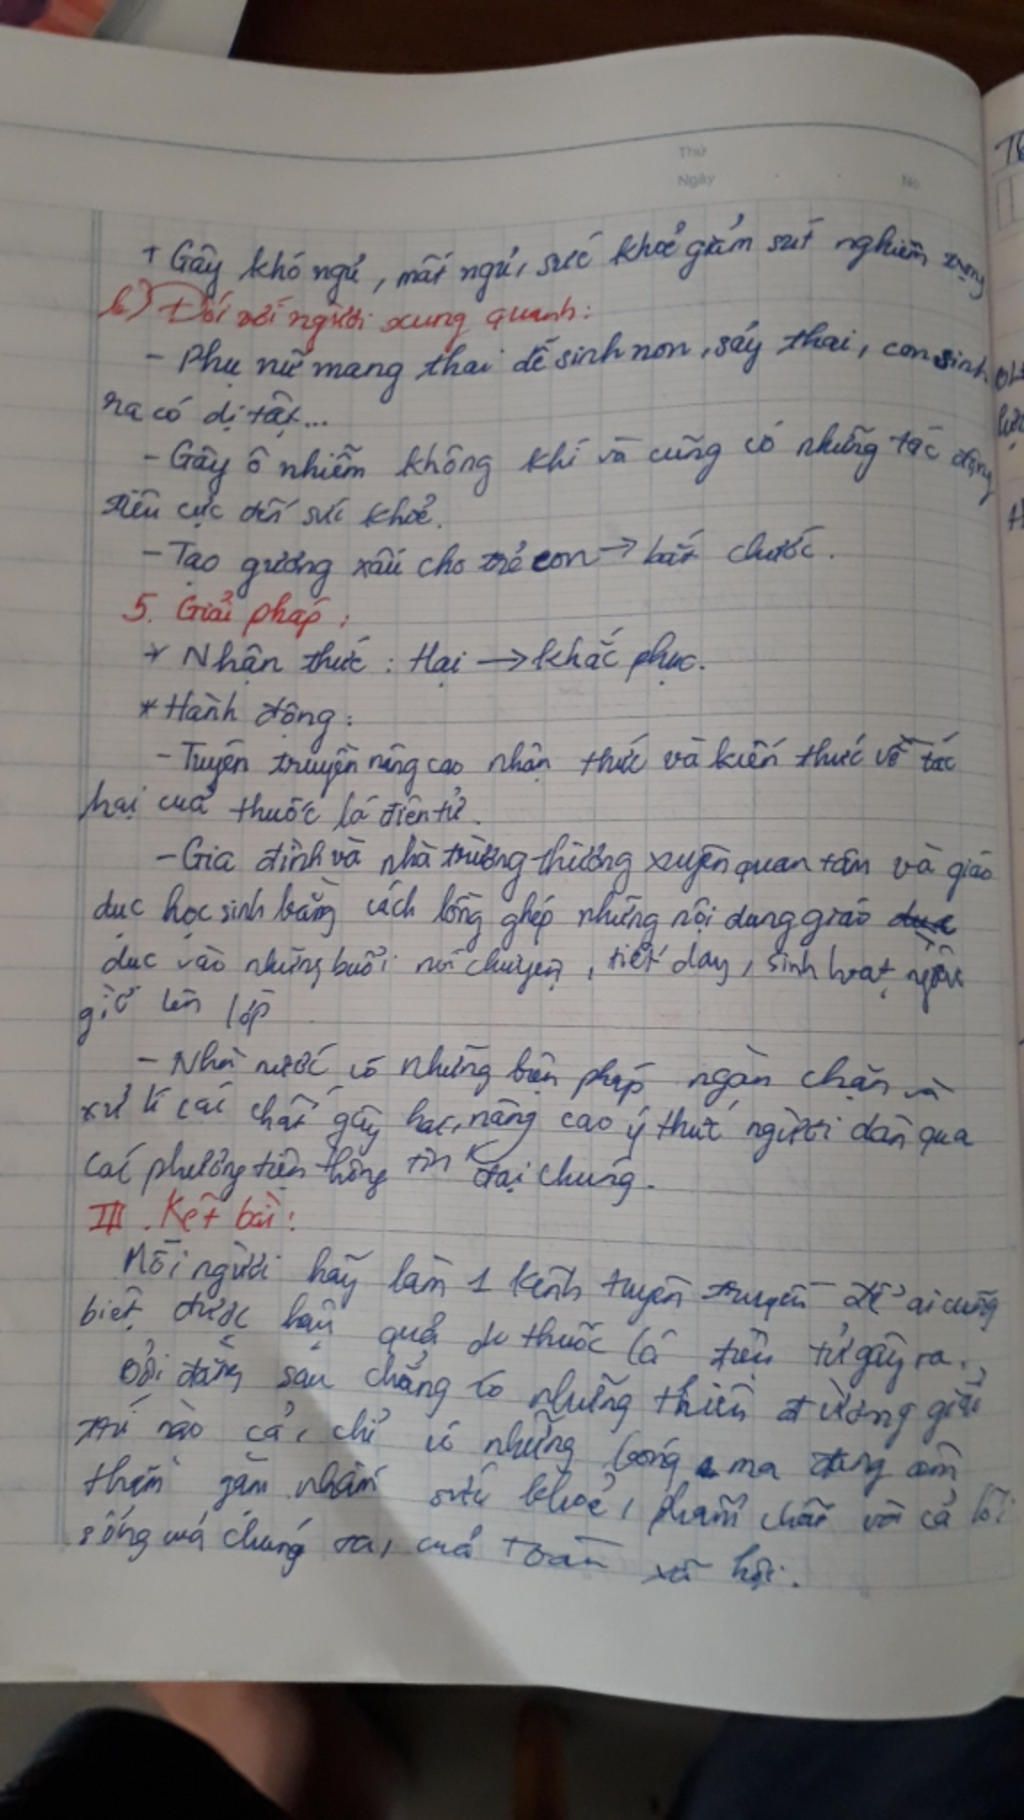 Thứ
Ngày No
+ Gây khó ngủ, mất ngủ, sức khoẻ giảm sút nghiêm trọng
b) Đối với người xung quanh:
- Phụ nữ mang thai dễ sinh non, sảy thai, con sinh
ra có dị tật...
- Gây ô nhiễm không khí và cũng có những tác động
tiêu cực đến sức khoẻ.
- Tạo gương xấu cho trẻ con → bắt chước.
5. Giải pháp:
* Nhận thức: Hại → khắc phục.
* Hành động:
- Tuyên truyền nâng cao nhận thức và kiến thức về tác
hại của thuốc lá điện tử.
- Gia đình và nhà trường thường xuyên quan tâm và giáo
dục học sinh bằng cách lồng ghép những nội dung giáo
dục vào những buổi nói chuyện, tiết dạy, sinh hoạt ngoài
giờ lên lớp
- Nhà nước có những biện pháp ngăn chặn và
xử lí các chất gây hại, nâng cao ý thức người dân qua
các phương tiện thông tin đại chúng.
III. Kết bài:
Mỗi người hãy làm 1 kênh tuyên truyền để ai cũng
biết được hậu quả do thuốc lá điện tử gây ra.
Bởi đằng sau chẳng có những thiên đường giải
trí nào cả, chỉ có những bóng ma đang âm
thầm gặm nhấm sức khoẻ, phẩm chất và cả lối
sống của chúng ta, của toàn xã hội.